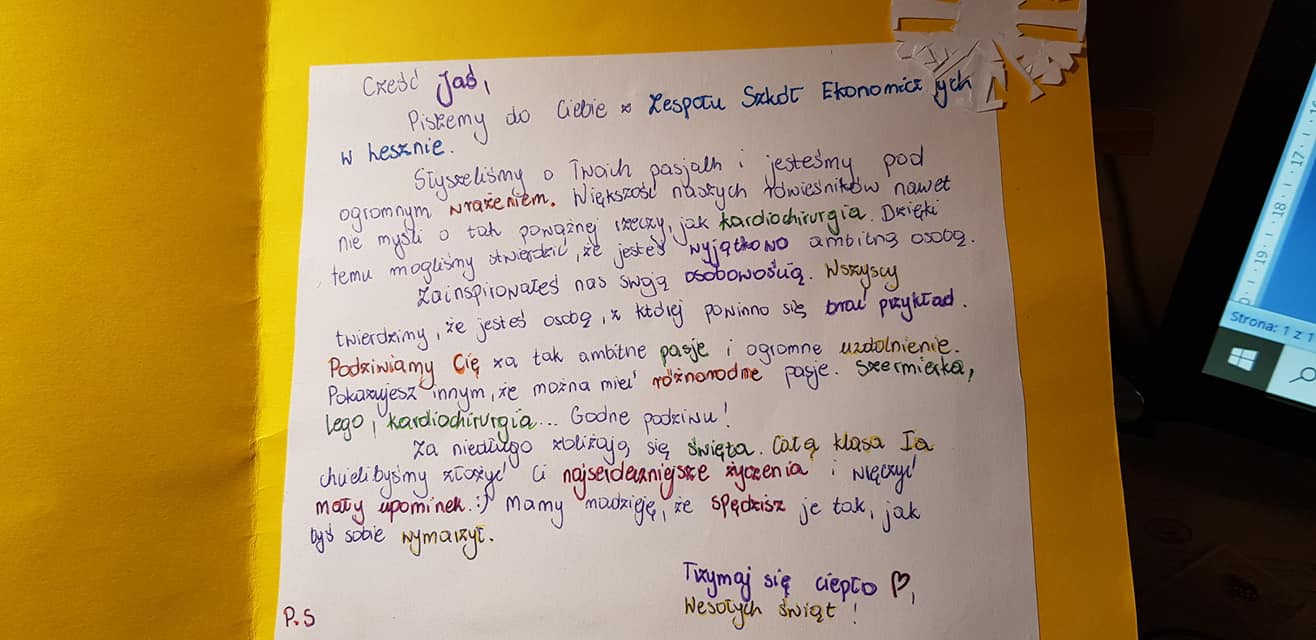 Cześć Jaś,
Piszemy do Ciebie z Zespołu Szkół Ekonomicznych
w Lesznie.
Słyszeliśmy o Twoich pasjach i jesteśmy pod
ogromnym wrażeniem. Większość naszych rówieśników nawet
nie myśli o tak poważnej rzeczy, jak kardiochirurgia. Dzięki
temu mogliśmy stwierdzić, że jesteś wyjątkowo ambitną osobą.
Zainspirowałeś nas swoją osobowością. Wszyscy
twierdzimy, że jesteś osobą, z której powinno się brać przykład.
Podziwiamy Cię za tak ambitne pasje i ogromne uzdolnienie.
Pokazujesz innym, że można mieć różnorodne pasje. Szermierka,
Lego, kardiochirurgia... Godne podziwu!
Za niedługo zbliżają się święta. Całą klasą Ia
chcielibyśmy złożyć Ci najserdeczniejsze życzenia i wręczyć
mały upominek. :) Mamy nadzieję, że spędzisz je tak, jak
byś sobie wymarzył.
Trzymaj się ciepło ♡,
Wesołych Świąt!
P.S
Strona: 1 z 1
· 19 · ı · 18 · ı · 17 · ı